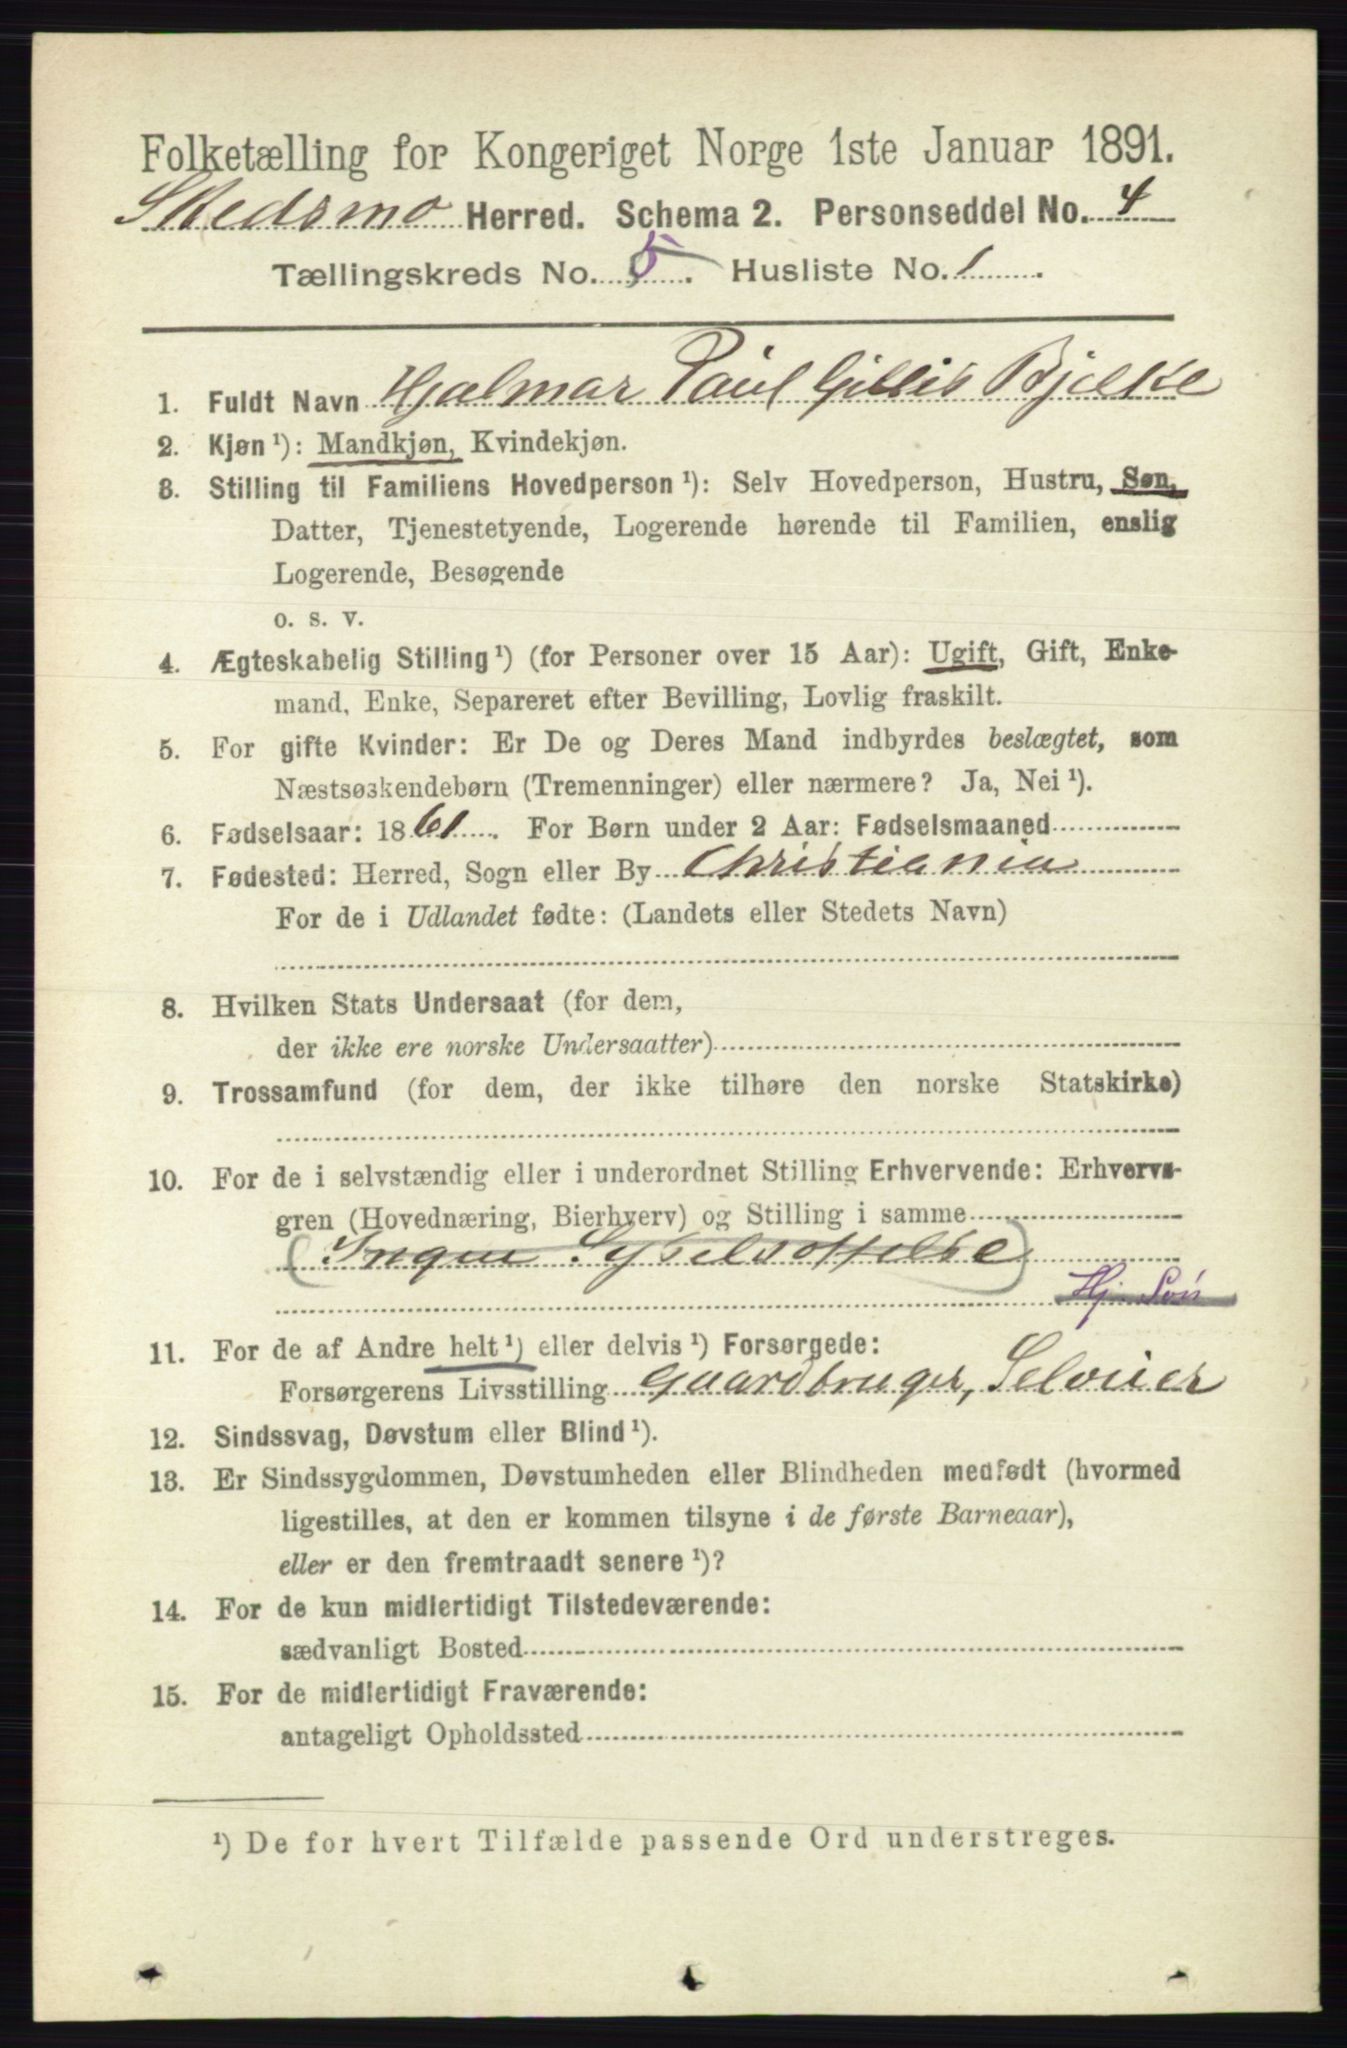 Folketælling for Kongeriget Norge 1ste Januar 1891.
Skedsmo Herred. Schema 2. Personseddel No. 4
Tællingskreds No. 5. Husliste No. 1.
1. Fuldt Navn Hjalmar Paul Gillis Bjelke
2. Kjøn ¹): Mandkjøn, Kvindekjøn.
3. Stilling til Familiens Hovedperson ¹): Selv Hovedperson, Hustru, Søn,
Datter, Tjenestetyende, Logerende hørende til Familien, enslig
Logerende, Besøgende
o. s. v.
4. Ægteskabelig Stilling ¹) (for Personer over 15 Aar): Ugift, Gift, Enke-
mand, Enke, Separeret efter Bevilling, Lovlig fraskilt.
5. For gifte Kvinder: Er De og Deres Mand indbyrdes beslægtet, som
Næstsøskendebørn (Tremenninger) eller nærmere? Ja, Nei ¹).
6. Fødselsaar: 1861. For Børn under 2 Aar: Fødselsmaaned
7. Fødested: Herred, Sogn eller By Christiania
For de i Udlandet fødte: (Landets eller Stedets Navn)
8. Hvilken Stats Undersaat (for dem,
der ikke ere norske Undersaatter)
9. Trossamfund (for dem, der ikke tilhøre den norske Statskirke)
10. For de i selvstændig eller i underordnet Stilling Erhvervende: Erhvervs-
gren (Hovednæring, Bierhverv) og Stilling i samme
(Ingen Sysselsættelse)
Hj. Søn
11. For de af Andre helt ¹) eller delvis ¹) Forsørgede:
Forsørgerens Livsstilling Gaardbruger, Selveier
12. Sindssvag, Døvstum eller Blind ¹).
13. Er Sindssygdommen, Døvstumheden eller Blindheden medfødt (hvormed
ligestilles, at den er kommen tilsyne i de første Barneaar),
eller er den fremtraadt senere ¹)?
14. For de kun midlertidigt Tilstedeværende:
sædvanligt Bosted
15. For de midlertidigt Fraværende:
antageligt Opholdssted
¹) De for hvert Tilfælde passende Ord understreges.